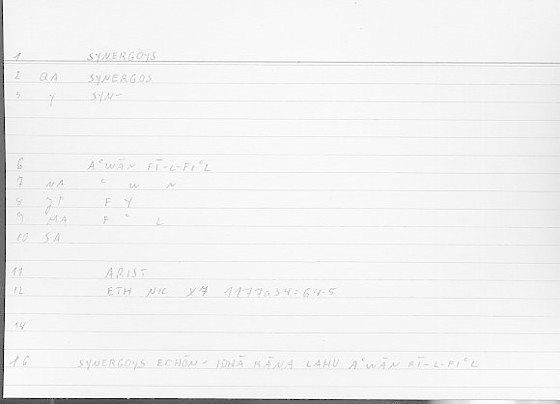 1 SYNERGOYS
2 QA SYNERGOS
3 Y SYN-
6 AᶜWĀN FĪ-L-FIᶜL
7 NA ᶜ W N
8 F Y
9 MA F ᶜ L
10 SA
11 ARIST
12 ETH NIC X7 1177a34: 64.5
14
16 SYNERGOYS ECHŌN - IDHĀ KĀNA LAHU AᶜWĀN FĪ-L-FIᶜL